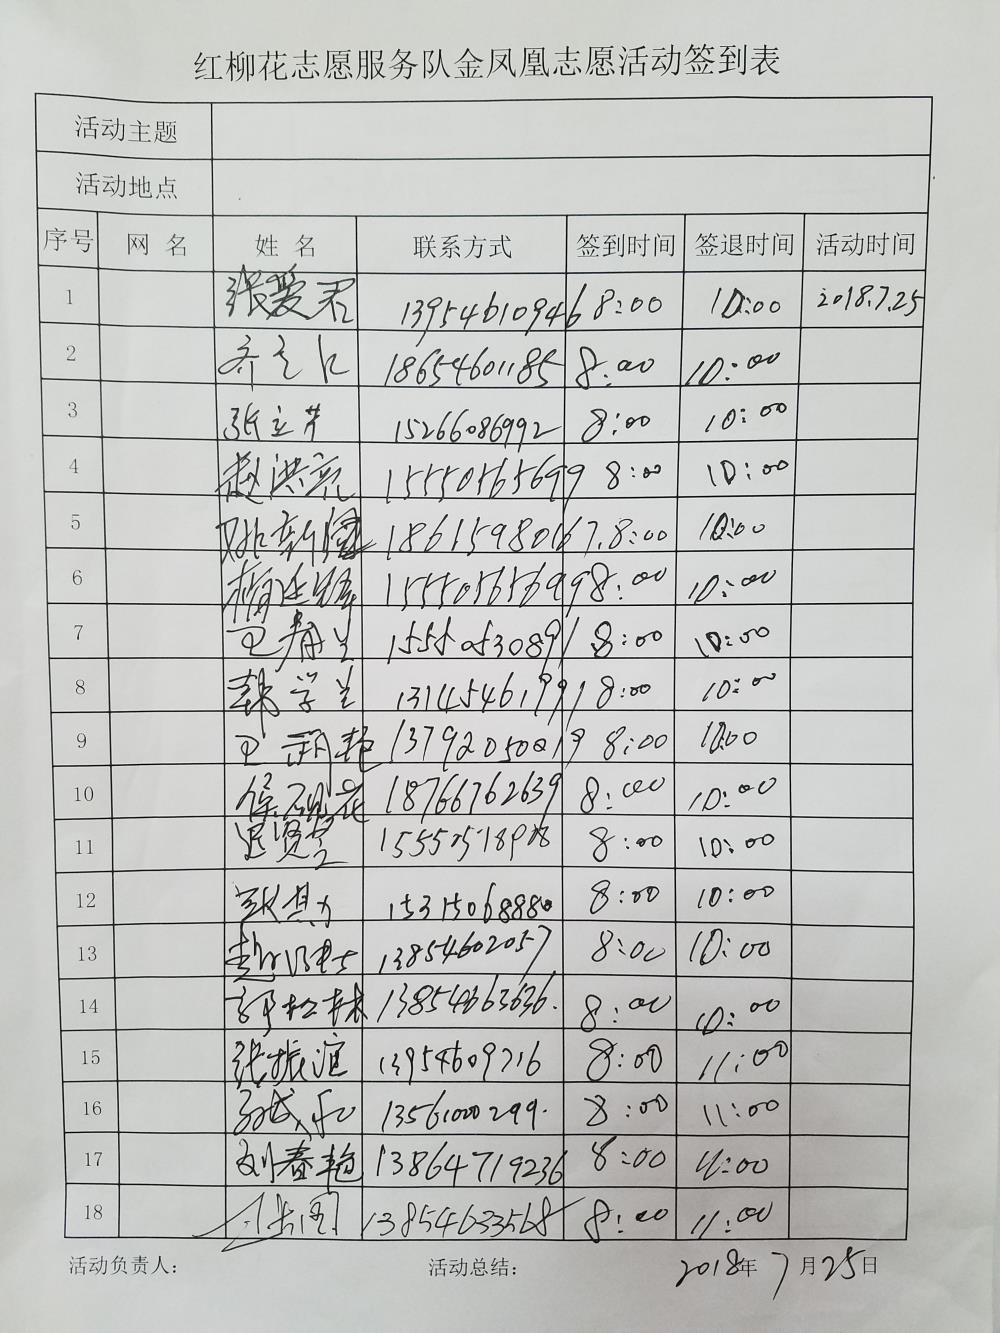 红柳花志愿服务队金凤凰志愿活动签到表
活动主题
活动地点
序号 网 名 姓 名 联系方式 签到时间 签退时间 活动时间
1 张爱君 13954610946 8:00 10:00 2018.7.25
2 18654601185 8:00 10:00
3 张立芹 15266086992 8:00 10:00
4 赵洪亮 15550565699 8:00 10:00
5 18615980167 8:00 10:00
6 15550565699 8:00 10:00
7 王寿兰 15550530891 8:00 10:00
8 韩学兰 13145461991 8:00 10:00
9 王 13792050019 8:00 10:00
10 侯砚花 18766762639 8:00 10:00
11 8:00 10:00
12 15315068880 8:00 10:00
13 赵 13854602057 8:00 10:00
14 郭松林 13854663636. 8:00 10:00
15 张振谊 13954609716 8:00 11:00
16 13561000299. 8:00 11:00
17 刘春艳 13864719236 8:00 11:00
18 13854633568 8:00 11:00
活动负责人： 活动总结： 2018年 7月25日